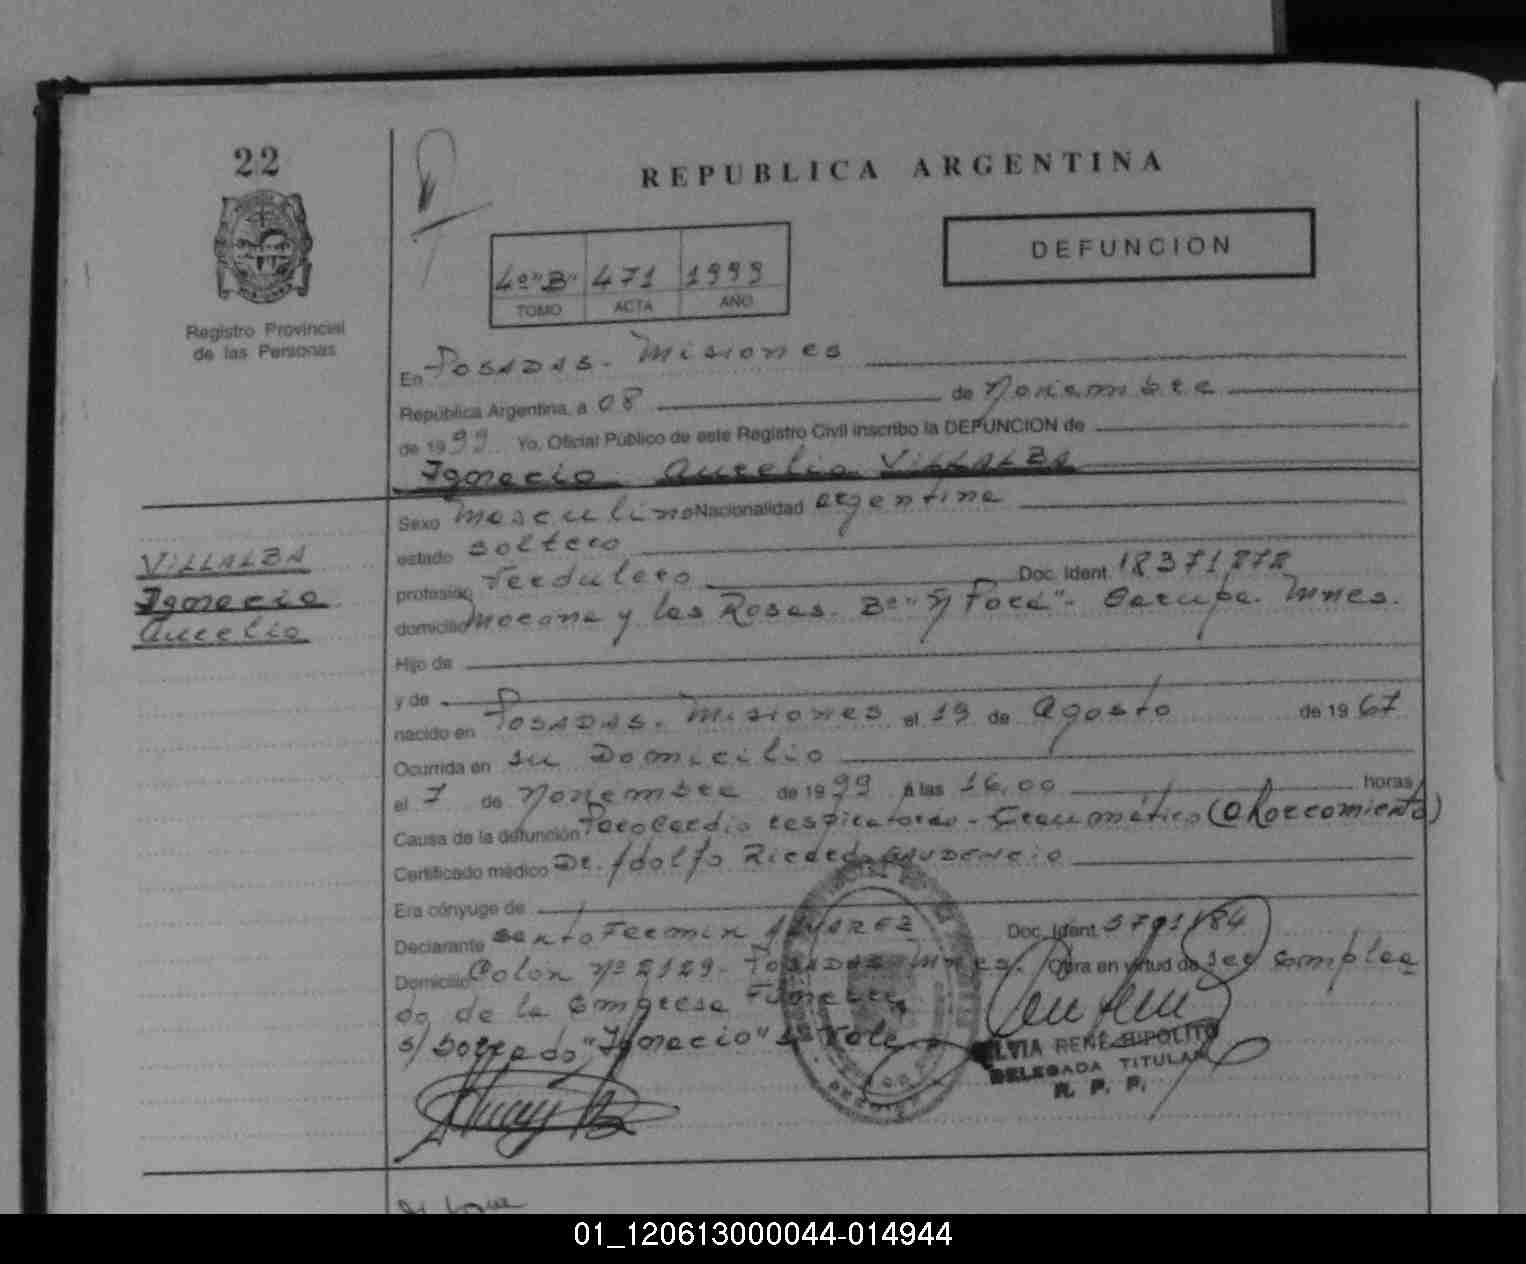 22
REPUBLICA ARGENTINA
DEFUNCION
4º "B" 471 1999
TOMO ACTA AÑO
Registro Provincial
de las Personas
En Posadas - Misiones
República Argentina, a 08 de Noviembre
de 1999 Yo, Oficial Público de este Registro Civil inscribo la DEFUNCION de
Ignacio Aurelio VILLALBA
VILLALBA
Ignacio
Aurelio
Sexo Masculino Nacionalidad argentina
estado soltero
profesión Verdulero Doc. Ident. 18371878
domicilio Mocona y las Rosas. Bº "Ñ Porá" - Garupa. Mnes.
Hijo de
y de
nacido en Posadas - Misiones el 19 de Agosto de 1967
Ocurrida en su Domicilio
el 7 de Noviembre de 1999 a las 16,00 horas
Causa de la defunción Paro Cardio respiratorio - Traumático (Ahorcamiento)
Certificado médico Dr. Adolfo Ricardo GAUDENCIO
Era cónyuge de
Declarante Santo Fermin ALVAREZ Doc. Ident. 5701184
Domicilio Colón Nº 2129 - Posadas - Mnes. Obra en virtud de ser emplea
do de la Empresa Funeraria
s/ borrado "Ignacio" s. Vale
SILVIA RENÉ HIPOLITO
DELEGADA TITULAR
R. P. P.
01_120613000044-014944